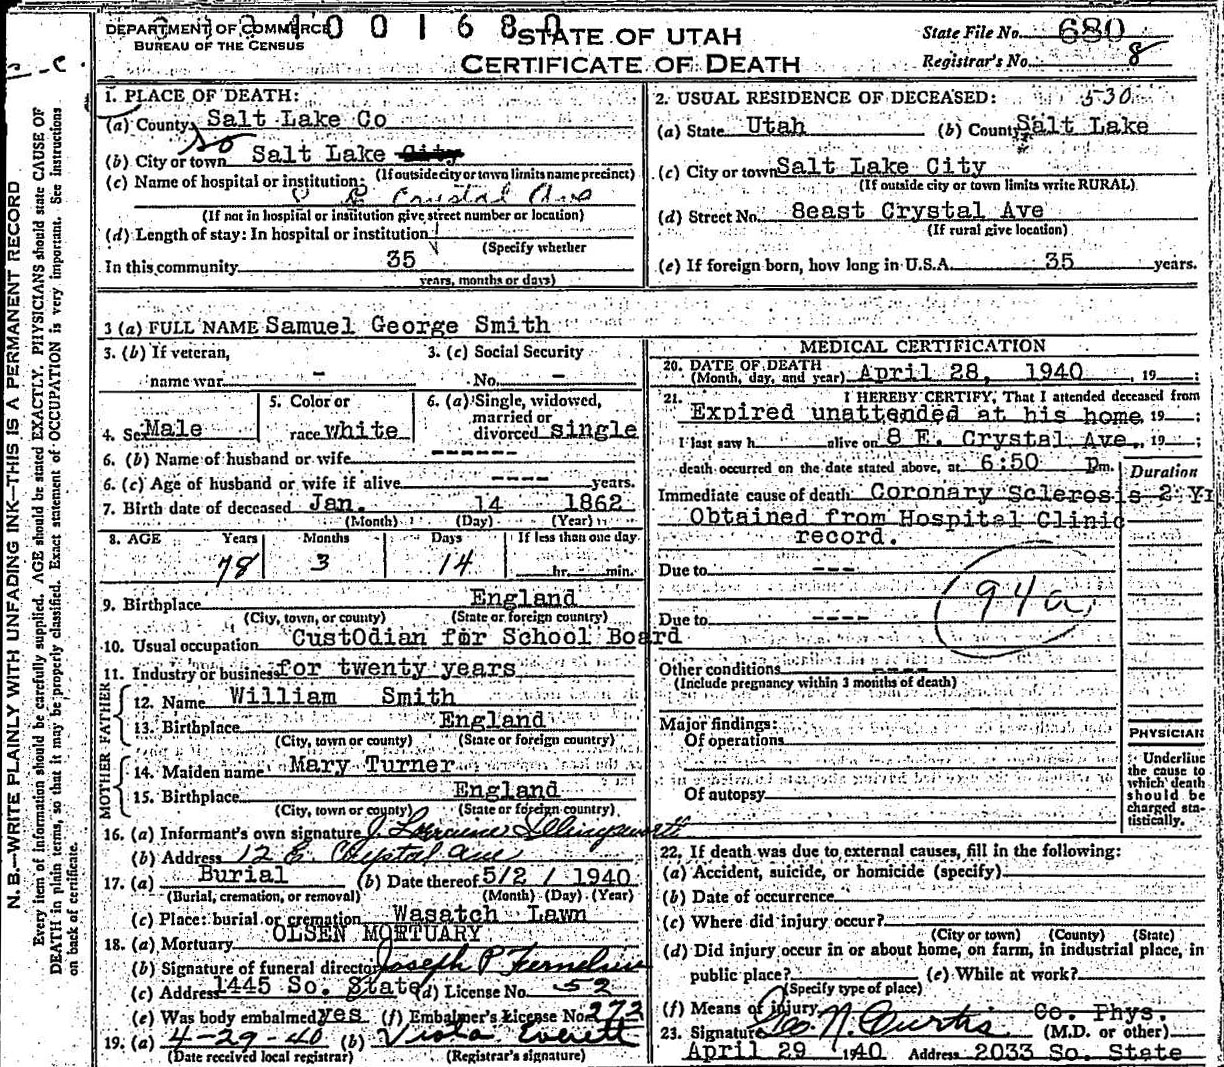 DEPARTMENT OF COMMERCE
BUREAU OF THE CENSUS
STATE OF UTAH
CERTIFICATE OF DEATH
State File No. 680
Registrar's No. 8
1. PLACE OF DEATH:
(a) County Salt Lake Co
So
(b) City or town Salt Lake City
(If outside city or town limits name precinct)
(c) Name of hospital or institution:
8 E Crystal Ave
(If not in hospital or institution give street number or location)
(d) Length of stay: In hospital or institution
(Specify whether
In this community 35
years, months or days)
2. USUAL RESIDENCE OF DECEASED: 530
(a) State Utah (b) County Salt Lake
(c) City or town Salt Lake City
(If outside city or town limits write RURAL)
(d) Street No. 8east Crystal Ave
(If rural give location)
(e) If foreign born, how long in U.S.A. 35 years.
3 (a) FULL NAME Samuel George Smith
3. (b) If veteran,
name war -
3. (c) Social Security
No. -
4. Sex Male
5. Color or
race white
6. (a) Single, widowed,
married or
divorced single
6. (b) Name of husband or wife ------
6. (c) Age of husband or wife if alive ---- years.
7. Birth date of deceased Jan. 14 1862
(Month) (Day) (Year)
8. AGE Years Months Days If less than one day
78 3 14 hr. min.
9. Birthplace England
(City, town, or county) (State or foreign country)
10. Usual occupation CustOdian for School Board
11. Industry or business for twenty years
FATHER
12. Name William Smith
13. Birthplace England
(City, town or county) (State or foreign country)
MOTHER
14. Maiden name Mary Turner
15. Birthplace England
(City, town or county) (State or foreign country)
16. (a) Informant's own signature J. Lorraine Illingsworth
(b) Address 12 E. Crystal Ave
17. (a) Burial (b) Date thereof 5/2 / 1940
(Burial, cremation, or removal) (Month) (Day) (Year)
(c) Place: burial or cremation Wasatch Lawn
18. (a) Mortuary OLSEN MORTUARY
(b) Signature of funeral director Joseph P. Fernelius
(c) Address 1445 So. State (d) License No. 52
(e) Was body embalmed yes (f) Embalmer's License No. 272
19. (a) 4-29-40 (b) Vista Everett
(Date received local registrar) (Registrar's signature)
MEDICAL CERTIFICATION
20. DATE OF DEATH
(Month, day, and year) April 28, 1940 , 19 ;
21. I HEREBY CERTIFY, That I attended deceased from
Expired unattended at his home 19 ;
I last saw h alive on 8 E. Crystal Ave., 19 ;
death occurred on the date stated above, at 6:50 Pm.
Duration
Immediate cause of death Coronary Sclerosis 2 Yr
Obtained from Hospital Clinic
record.
Due to ---
94a
Due to ----
Other conditions ----
(Include pregnancy within 3 months of death)
Major findings:
Of operations
Of autopsy
PHYSICIAN
Underline
the cause to
which death
should be
charged sta-
tistically.
22. If death was due to external causes, fill in the following:
(a) Accident, suicide, or homicide (specify)
(b) Date of occurrence
(c) Where did injury occur?
(City or town) (County) (State)
(d) Did injury occur in or about home, on farm, in industrial place, in
public place? (e) While at work?
(Specify type of place)
(f) Means of injury
23. Signature Geo N. Curtis Co. Phys.
(M.D. or other)
April 29 1940 Address 2033 So. State
N. B.—WRITE PLAINLY WITH UNFADING INK—THIS IS A PERMANENT RECORD
Every item of information should be carefully supplied. AGE should be stated EXACTLY. PHYSICIANS should state CAUSE OF
DEATH in plain terms, so that it may be properly classified. Exact statement of OCCUPATION is very important. See instructions
on back of certificate.